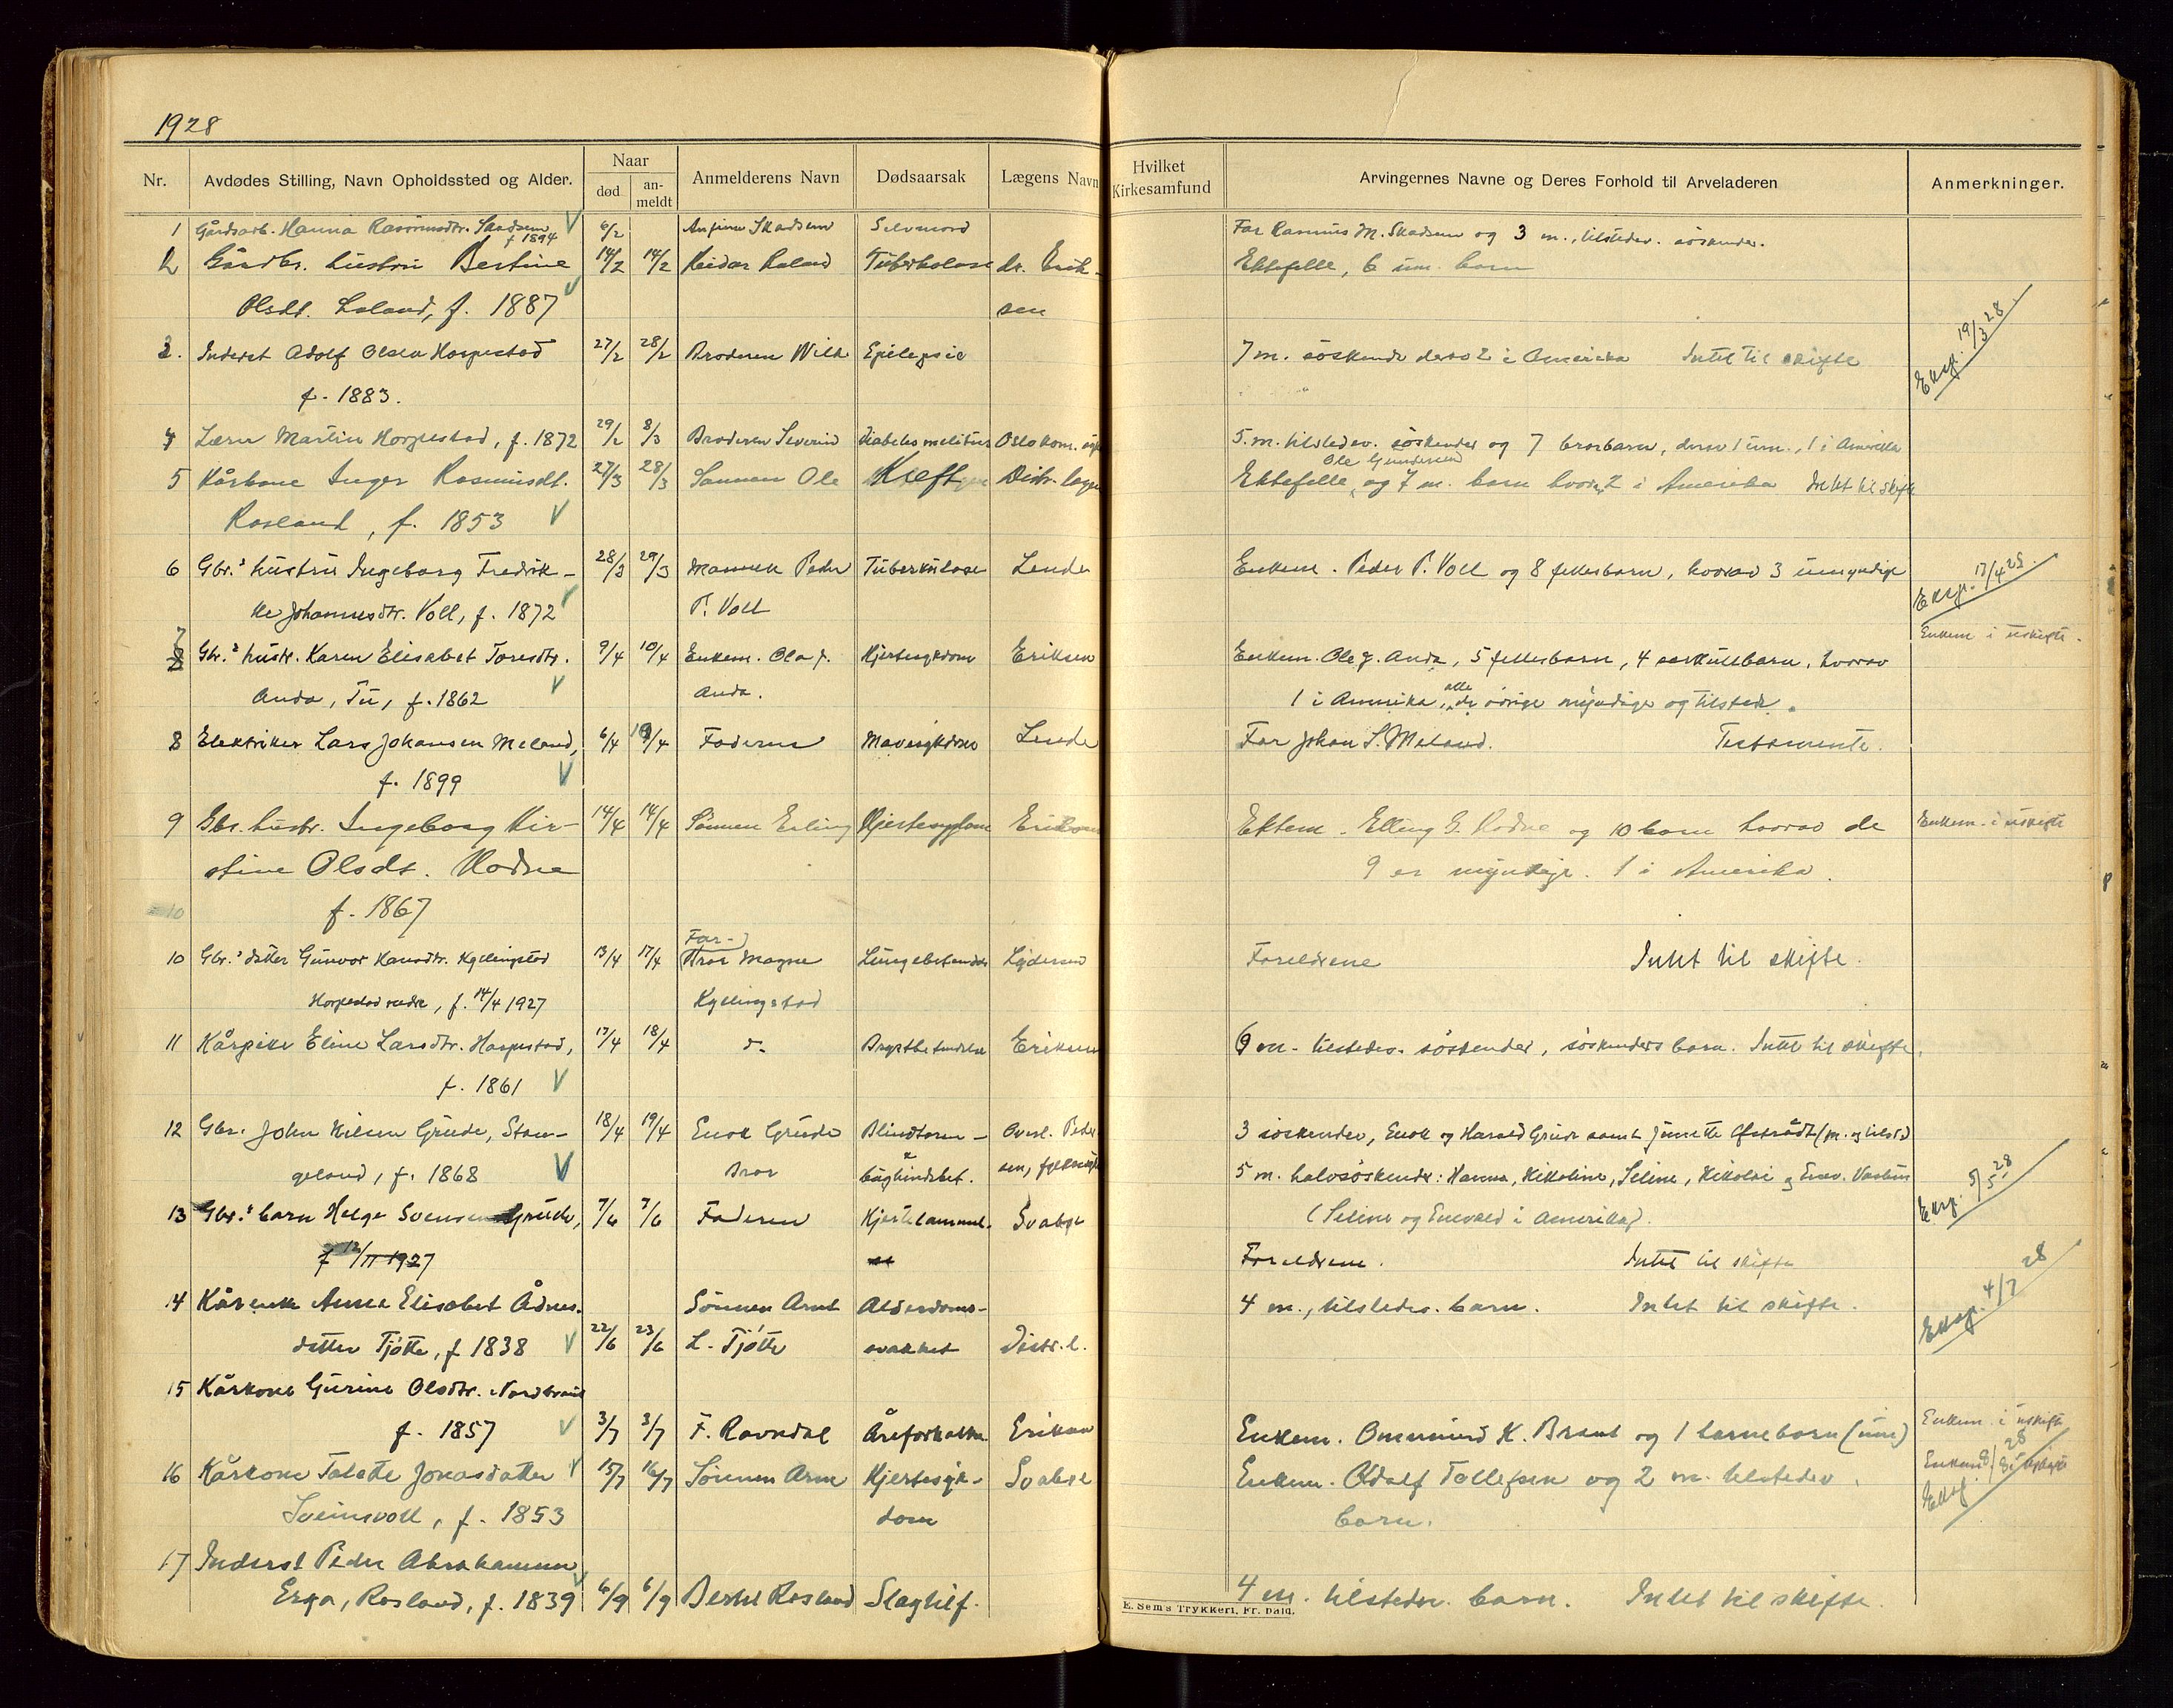 1928
Nr. Avdødes Stilling, Navn Opholdssted og Alder. Naar død an-meldt Anmelderens Navn Dødsaarsak Lægens Navn Hvilket Kirkesamfund Arvingernes Navne og Deres Forhold til Arveladeren Anmerkninger.
1 Gårdsarb. Hanna Rasmusdtr. Skadsem 6/2 Skadsem Selvmord Far Rasmus M. Skadsem og 3 m., tilstedev. søskender.
f 1894
2 Gårdbr. hustru Bertine 14/2 14/2 Reidar Laland Tuberkulose dr. Erik- Ektefelle, 6 um. barn
Olsdt. Laland, f. 1887 sen
3. Inderst Adolf Olsen Horpestad 27/2 28/2 Broderen Epilepsie 7 m. søskende derav 2 i Amerika Intet til skifte Eksp. 19/3 28
f. 1883.
4 Lærer Martin Horpestad, f. 1872 29/2 8/3 Broderen Severin Diabetes melitus Oslo kom. 5 m. tilstedev. søskender og 7 brorbarn, derav 1 um., 1 i Amerika
5 Kårkone Inger Rasmusdt. 27/3 28/3 Sønnen Ole Kreft Distr. læge Ektefelle Ole Gundersen og 7 m. barn hvorav 2 i Amerika Intet til skifte
Rosland, f. 1853
6 Gbr.s hustru Ingeborg Fredrik- 28/3 29/3 Mannen Peder Tuberkulose Lende Enkem. Peder P. Voll og 8 fellesbarn, hvorav 3 umyndige Eksp. 17/4 28.
ke Johannesdtr. Voll, f. 1872 P. Voll Enkem i uskifte.
7 Gbr.s hustr. Karen Elisabet Toresdtr. 9/4 10/4 Enkem. Ole J. Hjertesykdom Eriksen Enkem. Ole J. Anda, 5 fellesbarn, 4 særkullbarn, hvorav
Anda, Tu, f. 1862 Anda. 1 i Amerika, alle de øvrige myndige og tilstede.
8 Elektriker Lars Johansen Meland, 6/4 10/4 Faderen Mavesykdom Lende Far Johan S. Meland. Testamente.
f. 1899
9 Gbr. hustr. Ingeborg Kir- 14/4 14/4 Sønnen Erling Hjertesykdom Eriksen Ektem. Elling G. Hodne og 10 barn hvorav de Enkem. i uskifte
stine Olsdt. Hodne 9 er myndige. 1 i Amerika.
f. 1867
10
10 Gbr.s datter Gunvor Hansdtr. Kyllingstad 13/4 17/4 Far-bror Magne Lungebetendelse Lydersen Foreldrene Intet til skifte.
Horpestad nedre, f. 14/4 1927 Kyllingstad
11 Kårpike Eline Larsdtr. Horpestad, 17/4 18/4 d. Brystbetendelse Eriksen 6 m. tilstedev. søskender, søskenders barn. Intet til skifte.
f. 1861
12 Gbr. John Nilsen Grude, Stan- 18/4 19/4 Enok Grude Blindtarm- Overl. Peder- 3 søskender, Enok og Harald Grude samt Junette Ofstrådt (m. og tilsted)
geland, f. 1868 Bror & bughindebet. sen, 5 m. halvsøskender: Hanna, Nikoline, Seline, Nikolai og Enev.
13 Gbr.s barn Helge Svensen Grude, 7/6 7/6 Faderen Hjertelammel- Svabø (Seline og Enevald i Amerika). Eksp. 5/5 28
f 12/11 1927 se Foreldrene. Intet til skifte
14 Kårenke Anna Elisabet Ådnes- Sønnen Arnt Alderdoms- 4 m., tilstedev. barn. Intet til skifte. Eksp. 4/7 28
datter Tjøtta, f 1838 22/6 23/6 L. Tjøtta svakhet Distr. l.
15 Kårkone Gurine Olsdtr. Nordbraut
f. 1857 3/7 3/7 F. Ravndal Åreforkalkn. Eriksen Enkem. Ommund K. Braut og 1 barnebarn (um) Enkem. i uskifte
16 Kårkone Talette Jonasdatter 15/7 16/7 Sønnen Arne Hjertesyk- Svabø Enkem. Adolf Tollefsen og 2 m. tilstedev. Enkem i uskifte
Sveinsvoll, f. 1853 dom barn. Eksp. 28
17 Inderst Peder Abrahamsen
Erga, Rosland, f. 1839 6/9 6/9 Bertel Rosland Slagtilf. 4 m. tilstedev. barn. Intet til skifte.
E. Sem's Trykkeri, Fr. hald.